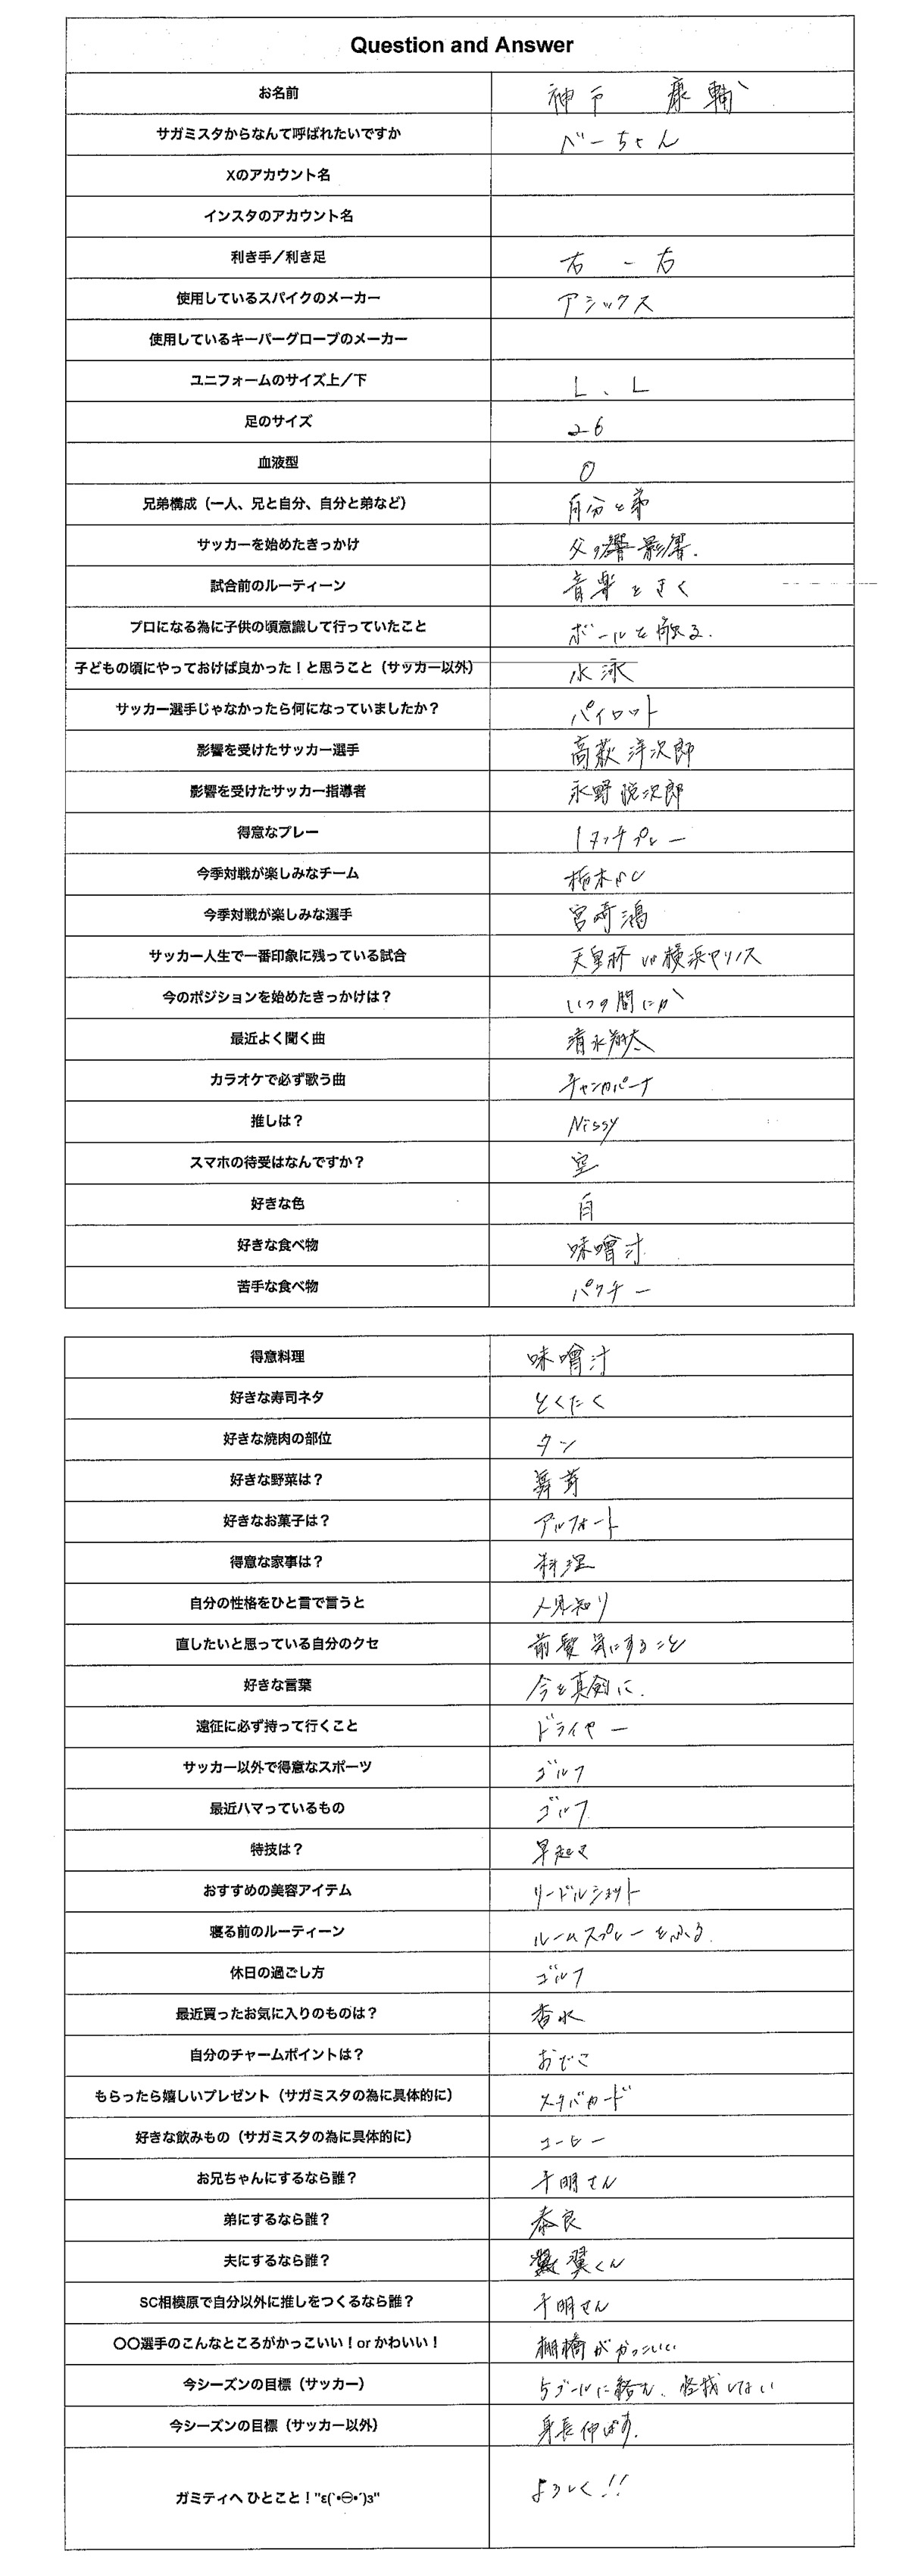 Question and Answer
お名前 神戸 康輔
サガミスタからなんて呼ばれたいですか べーちゃん
Xのアカウント名
インスタのアカウント名
利き手／利き足 右 - 右
使用しているスパイクのメーカー アシックス
使用しているキーパーグローブのメーカー
ユニフォームのサイズ上／下 L、L
足のサイズ 26
血液型 O
兄弟構成（一人、兄と自分、自分と弟など） 自分と弟
サッカーを始めたきっかけ 父の影響.
試合前のルーティーン 音楽をきく
プロになる為に子供の頃意識して行っていたこと ボールを触る.
子どもの頃にやっておけば良かった！と思うこと（サッカー以外） 水泳
サッカー選手じゃなかったら何になっていましたか？ パイロット
影響を受けたサッカー選手 高萩 洋次郎
影響を受けたサッカー指導者 永野 悦次郎
得意なプレー 1タッチプレー
今季対戦が楽しみなチーム 栃木SC
今季対戦が楽しみな選手 宮崎鴻
サッカー人生で一番印象に残っている試合 天皇杯 vs 横浜マリノス
今のポジションを始めたきっかけは？ いつの間にか
最近よく聞く曲 清水翔太
カラオケで必ず歌う曲 チャンカパーナ
推しは？ Nissy
スマホの待受はなんですか？ 空
好きな色 白
好きな食べ物 味噌汁
苦手な食べ物 パクチー
得意料理 味噌汁
好きな寿司ネタ とくたく
好きな焼肉の部位 タン
好きな野菜は？ 舞茸
好きなお菓子は？ アルフォート
得意な家事は？ 料理
自分の性格をひと言で言うと 人見知り
直したいと思っている自分のクセ 前髪 気にすること
好きな言葉 今を真剣に.
遠征に必ず持って行くこと ドライヤー
サッカー以外で得意なスポーツ ゴルフ
最近ハマっているもの ゴルフ
特技は？ 早起き
おすすめの美容アイテム リードルショット
寝る前のルーティーン ルームスプレーをふる.
休日の過ごし方 ゴルフ
最近買ったお気に入りのものは？ 香水
自分のチャームポイントは？ おでこ
もらったら嬉しいプレゼント（サガミスタの為に具体的に） スタバカード
好きな飲みもの（サガミスタの為に具体的に） コーヒー
お兄ちゃんにするなら誰？ 千明さん
弟にするなら誰？ 泰良
夫にするなら誰？ 翼くん
SC相模原で自分以外に推しをつくるなら誰？ 千明さん
〇〇選手のこんなところがかっこいい！or かわいい！ 棚橋がかっこいい
今シーズンの目標（サッカー） 5ゴールに絡む、怪我しない
今シーズンの目標（サッカー以外） 身長伸ばす.
ガミティへ ひとこと！"ε(`•㊀•´)з" よろしく!!